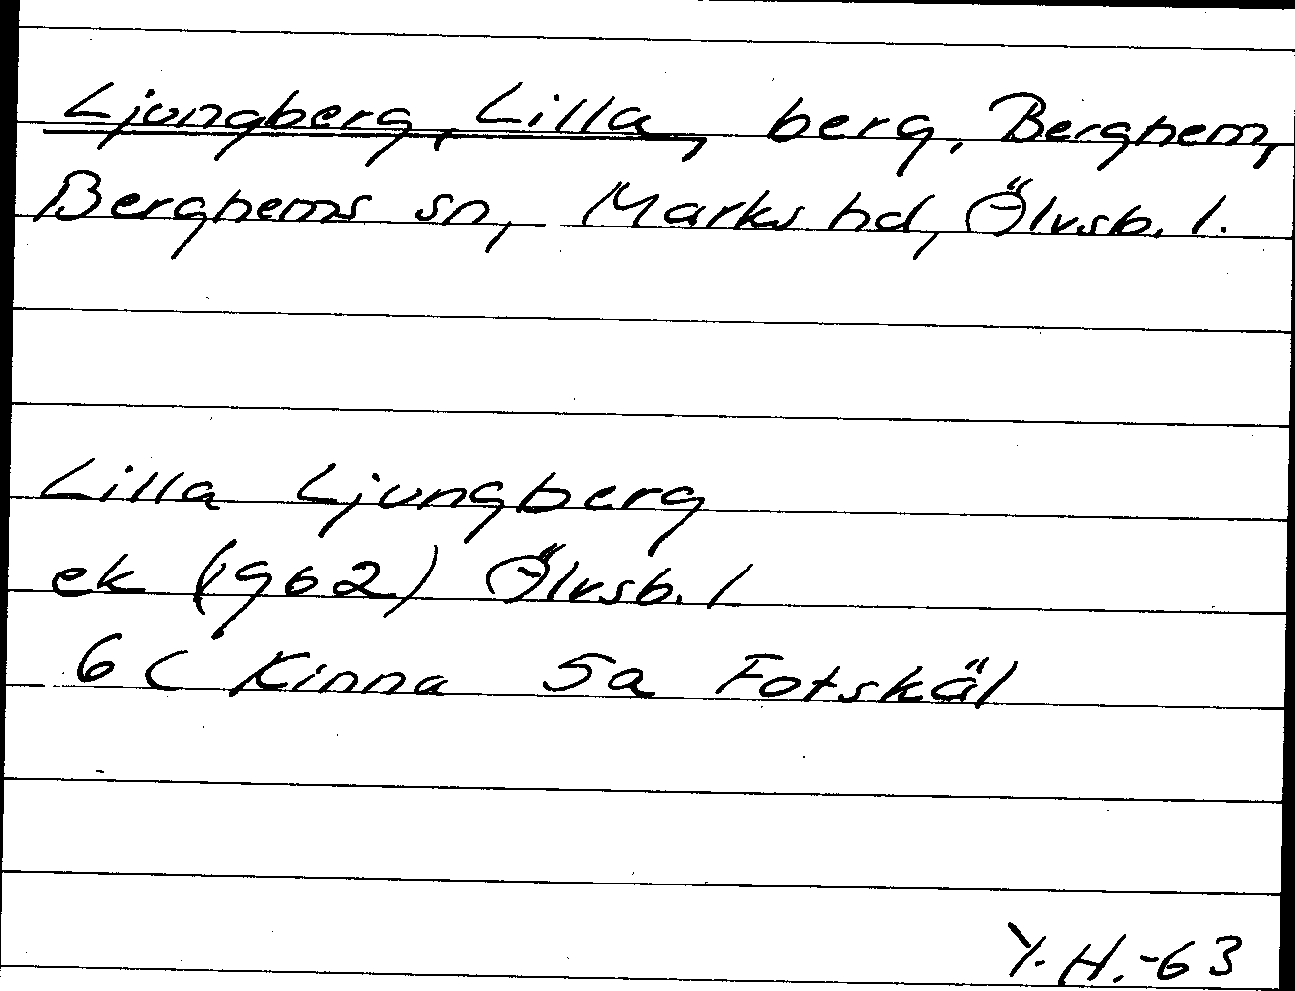 Ljungberg, Lilla, berg, Berghem,
Berghems sn, Marks hd, Älvsb. l.
Lilla Ljungberg
ek (1962) Älvsb. l
6 C Kinna 5a Fotskäl
Y. H. -63